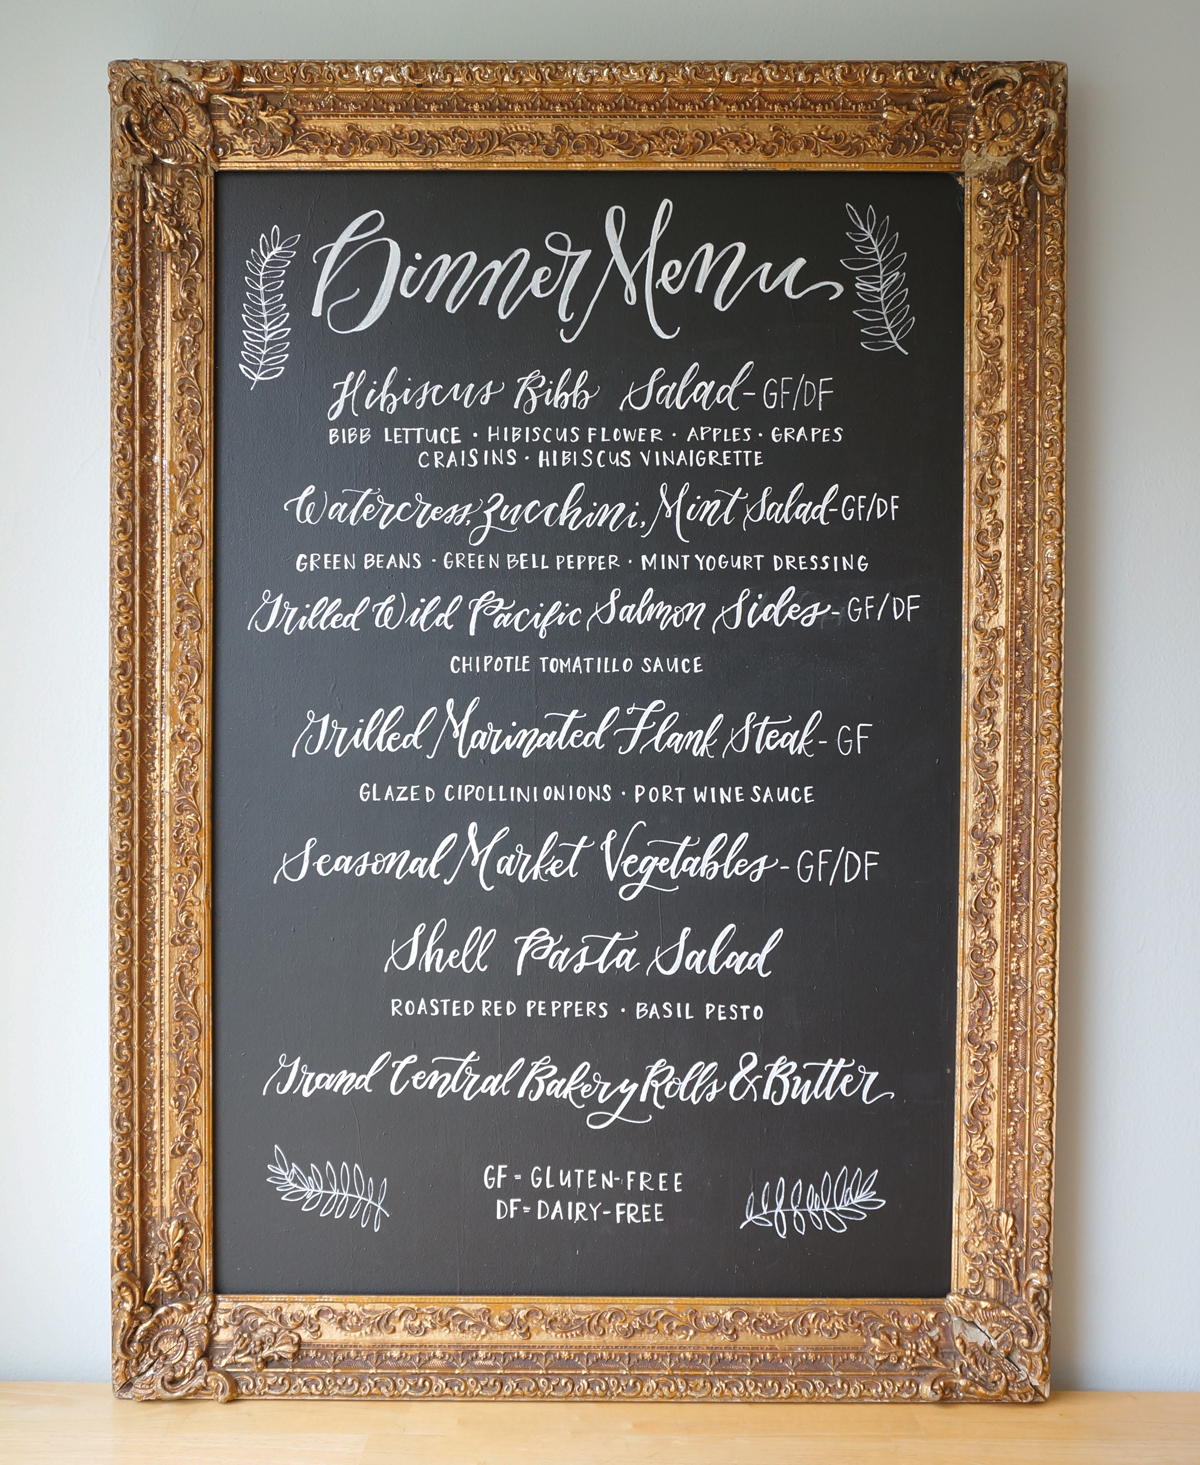 Dinner Menu
Hibiscus Bibb Salad - GF/DF
BIBB LETTUCE · HIBISCUS FLOWER · APPLES · GRAPES
CRAISINS · HIBISCUS VINAIGRETTE
Watercress, Zucchini, Mint Salad - GF/DF
GREEN BEANS · GREEN BELL PEPPER · MINT YOGURT DRESSING
Grilled Wild Pacific Salmon Sides - GF/DF
CHIPOTLE TOMATILLO SAUCE
Grilled Marinated Flank Steak - GF
GLAZED CIPOLLINI ONIONS · PORT WINE SAUCE
Seasonal Market Vegetables - GF/DF
Shell Pasta Salad
ROASTED RED PEPPERS · BASIL PESTO
Grand Central Bakery Rolls & Butter
GF = GLUTEN-FREE
DF = DAIRY-FREE